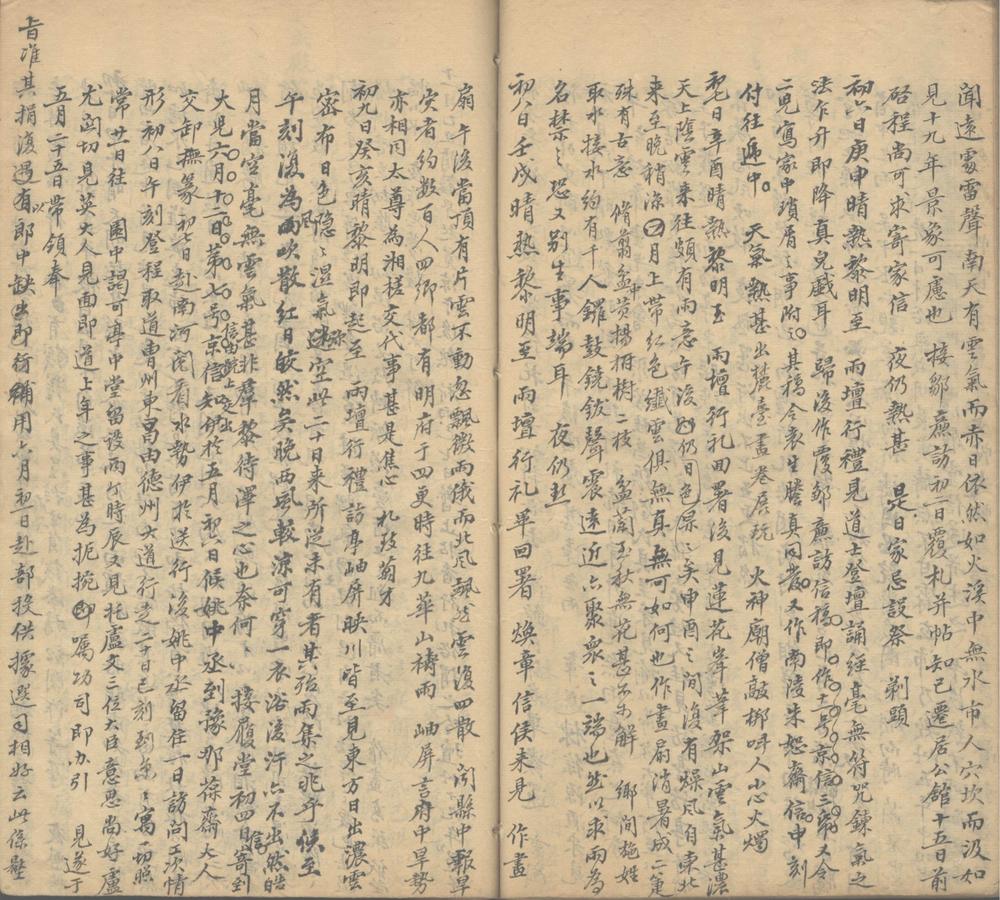 聞遠處雷聲南天有雲氣而赤日依然如火溪中無水市人穴坎而汲如
見十九年景象可慮也 接鄒廉訪初二日覆札并帖知已遷居公館十五日前
啓程尚可求寄家信 夜仍熱甚 是日家忌設祭 剃頭
初六日庚申晴熱黎明至 雨壇行禮見道士登壇誦經毫無符咒鍊氣之
法乍升即降真兒戲耳 歸後作覆鄒廉訪信稿即作十一号京信三
二兒寫家中瑣屑之事附之其稿令袁生謄真同發又作南陵朱恕齋信申刻
付往遞中 天氣熱甚出麓臺畫卷展玩 火神廟僧敲梆呌人小心火燭
初七日辛酉晴熱黎明至 雨壇行礼回署後見蓮花峯筆架山雲氣甚濃
天上陰雲來往頗有雨意午後仍日色杲杲矣申酉之間復有燥風自東北
來至晚稍涼月上帶紅色纖雲俱無真無可如何也作畫扇消暑成二箑
殊有古意 脩翦盆中黄楊柏樹二枝 盆蘭至秋無花甚不解 鄉間拖姓
取水接水約有千人鑼鼓鐃鈸聲震遠近亦聚衆之一端也並以求雨為
名禁之恐又别生事端耳 夜仍熱
初八日壬戌晴熱黎明至 雨壇行礼畢回署 煥章信侯來見 作畫
扇 午後當頂有片雲不動忽飄微雨俄而北風飄飄雲復四散 聞縣中報旱
灾者約數百人四鄉都有明府于四更時往九華山禱雨 岫屏言府中旱勢
亦相同太尊為湘槎交代事甚是焦心 札致菊才
初九日癸亥晴黎明即起至 雨壇行禮訪亭岫屏映川皆至見東方日出濃雲
密布日色隱隱濕氣迷空此二十日來所從未有者其殆雨集之兆乎俟至
午刻復為西風吹散紅日皎然矣晚西風較涼可穿一衣浴後汗亦不出然皓
月當空毫無雲氣甚非羣黎待澤之心也奈何 接履堂初四日寄到
大兒六月十二日第七号京信知伊於五月初一日候姚中丞到豫那葆齋大人
交卸撫篆初七日赴南河閱看水勢伊於送行後姚中丞留住一日訪問工次情
形初八日午刻登程取道曹州東昌由德州大道行走二十日巳刻到京寓一切照
常廿一日往 園中謁可亭中堂留談兩个時辰又見托盧文三位大臣意思尚好盧
尤関切見英大人見面即道上年之事甚為扼捥即囑功司即办引 見遂于
五月二十五日帶領奉
旨准其捐復遇有郎中缺出即行補用六月初一日赴部投供據選司相好云此係壓